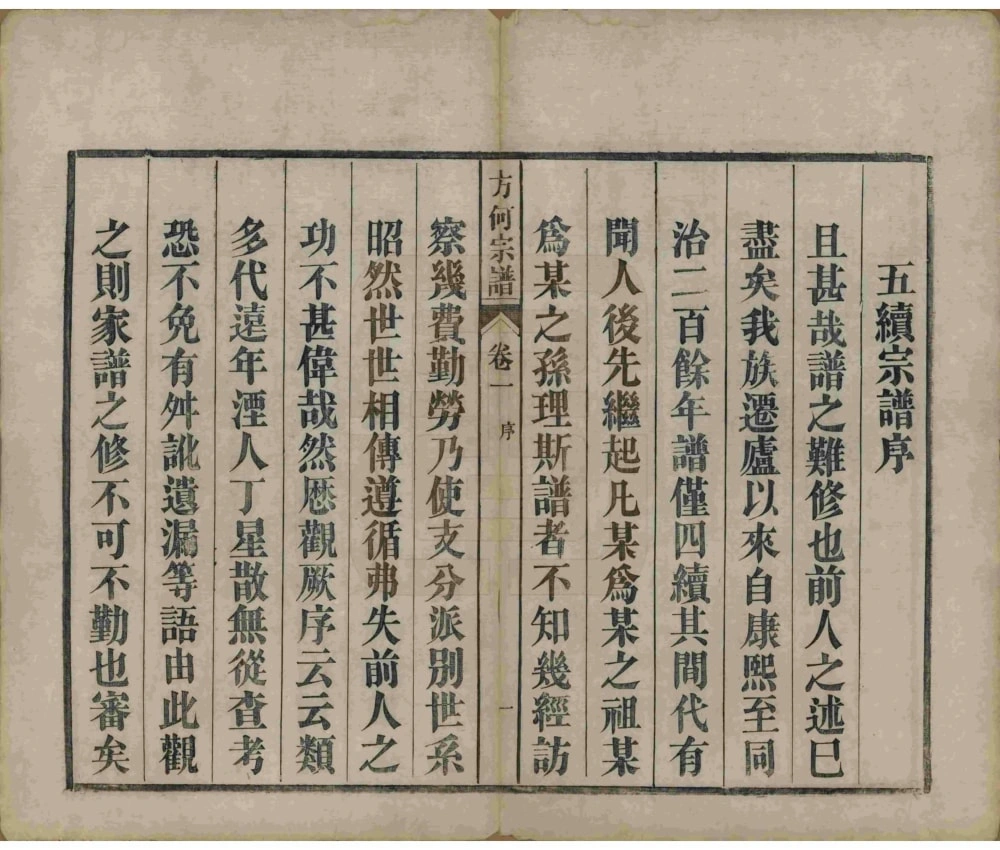 五續宗譜序
且甚哉譜之難修也前人之述巳
盡矣我族遷廬以來自康熙至同
治二百餘年譜僅四續其間代有
聞人後先繼起凡某爲某之祖某
爲某之孫理斯譜者不知幾經訪
方何宗譜 卷一 序 一
察幾費勤勞乃使支分派別世系
昭然世世相傳遵循弗失前人之
功不甚偉哉然歷觀厥序云云類
多代遠年湮人丁星散無從查考
恐不免有舛訛遺漏等語由此觀
之則家譜之修不可不勤也審矣